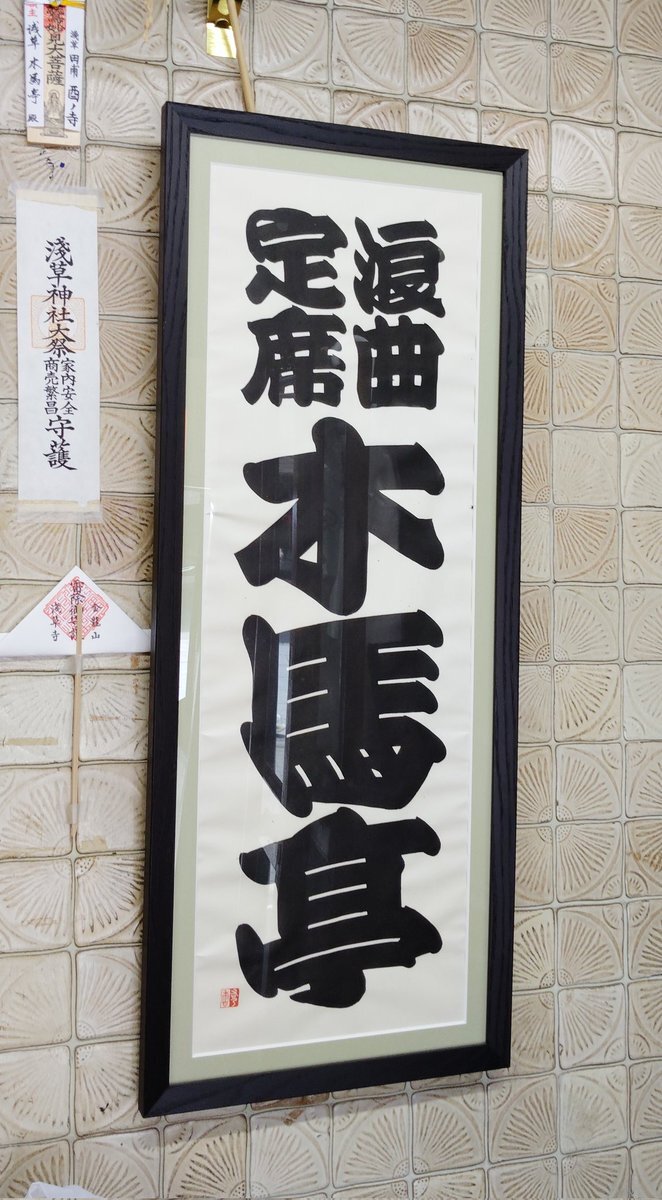 浪曲
定席
木馬亭
浅草 田甫 酉ノ寺
鷲妙見大菩薩
浅草 木馬亭 殿
淺草神社大祭
家内安全
商売繁昌
守護
金龍山
浅草寺